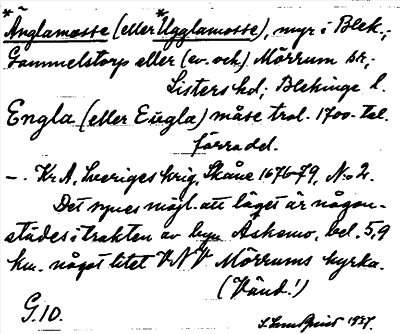 *Änglamosse (eller *Ugglamosse), myr i Blek.;
Gammelstorp eller (ev. och) Mörrum sn;
Listers hd; Blekinge l.
Engla (eller Eugla) måse trol. 1700-tal.
förrådet.
–. Kr A, Sveriges krig, Skåne 1676-79, No 2.
Det synes möjl. att läget är någon-
städes i trakten av byn Askemo, bel. 5,9
km. något litet VNV Mörrums kyrka.
(Vänd!)
G.10. 1937.